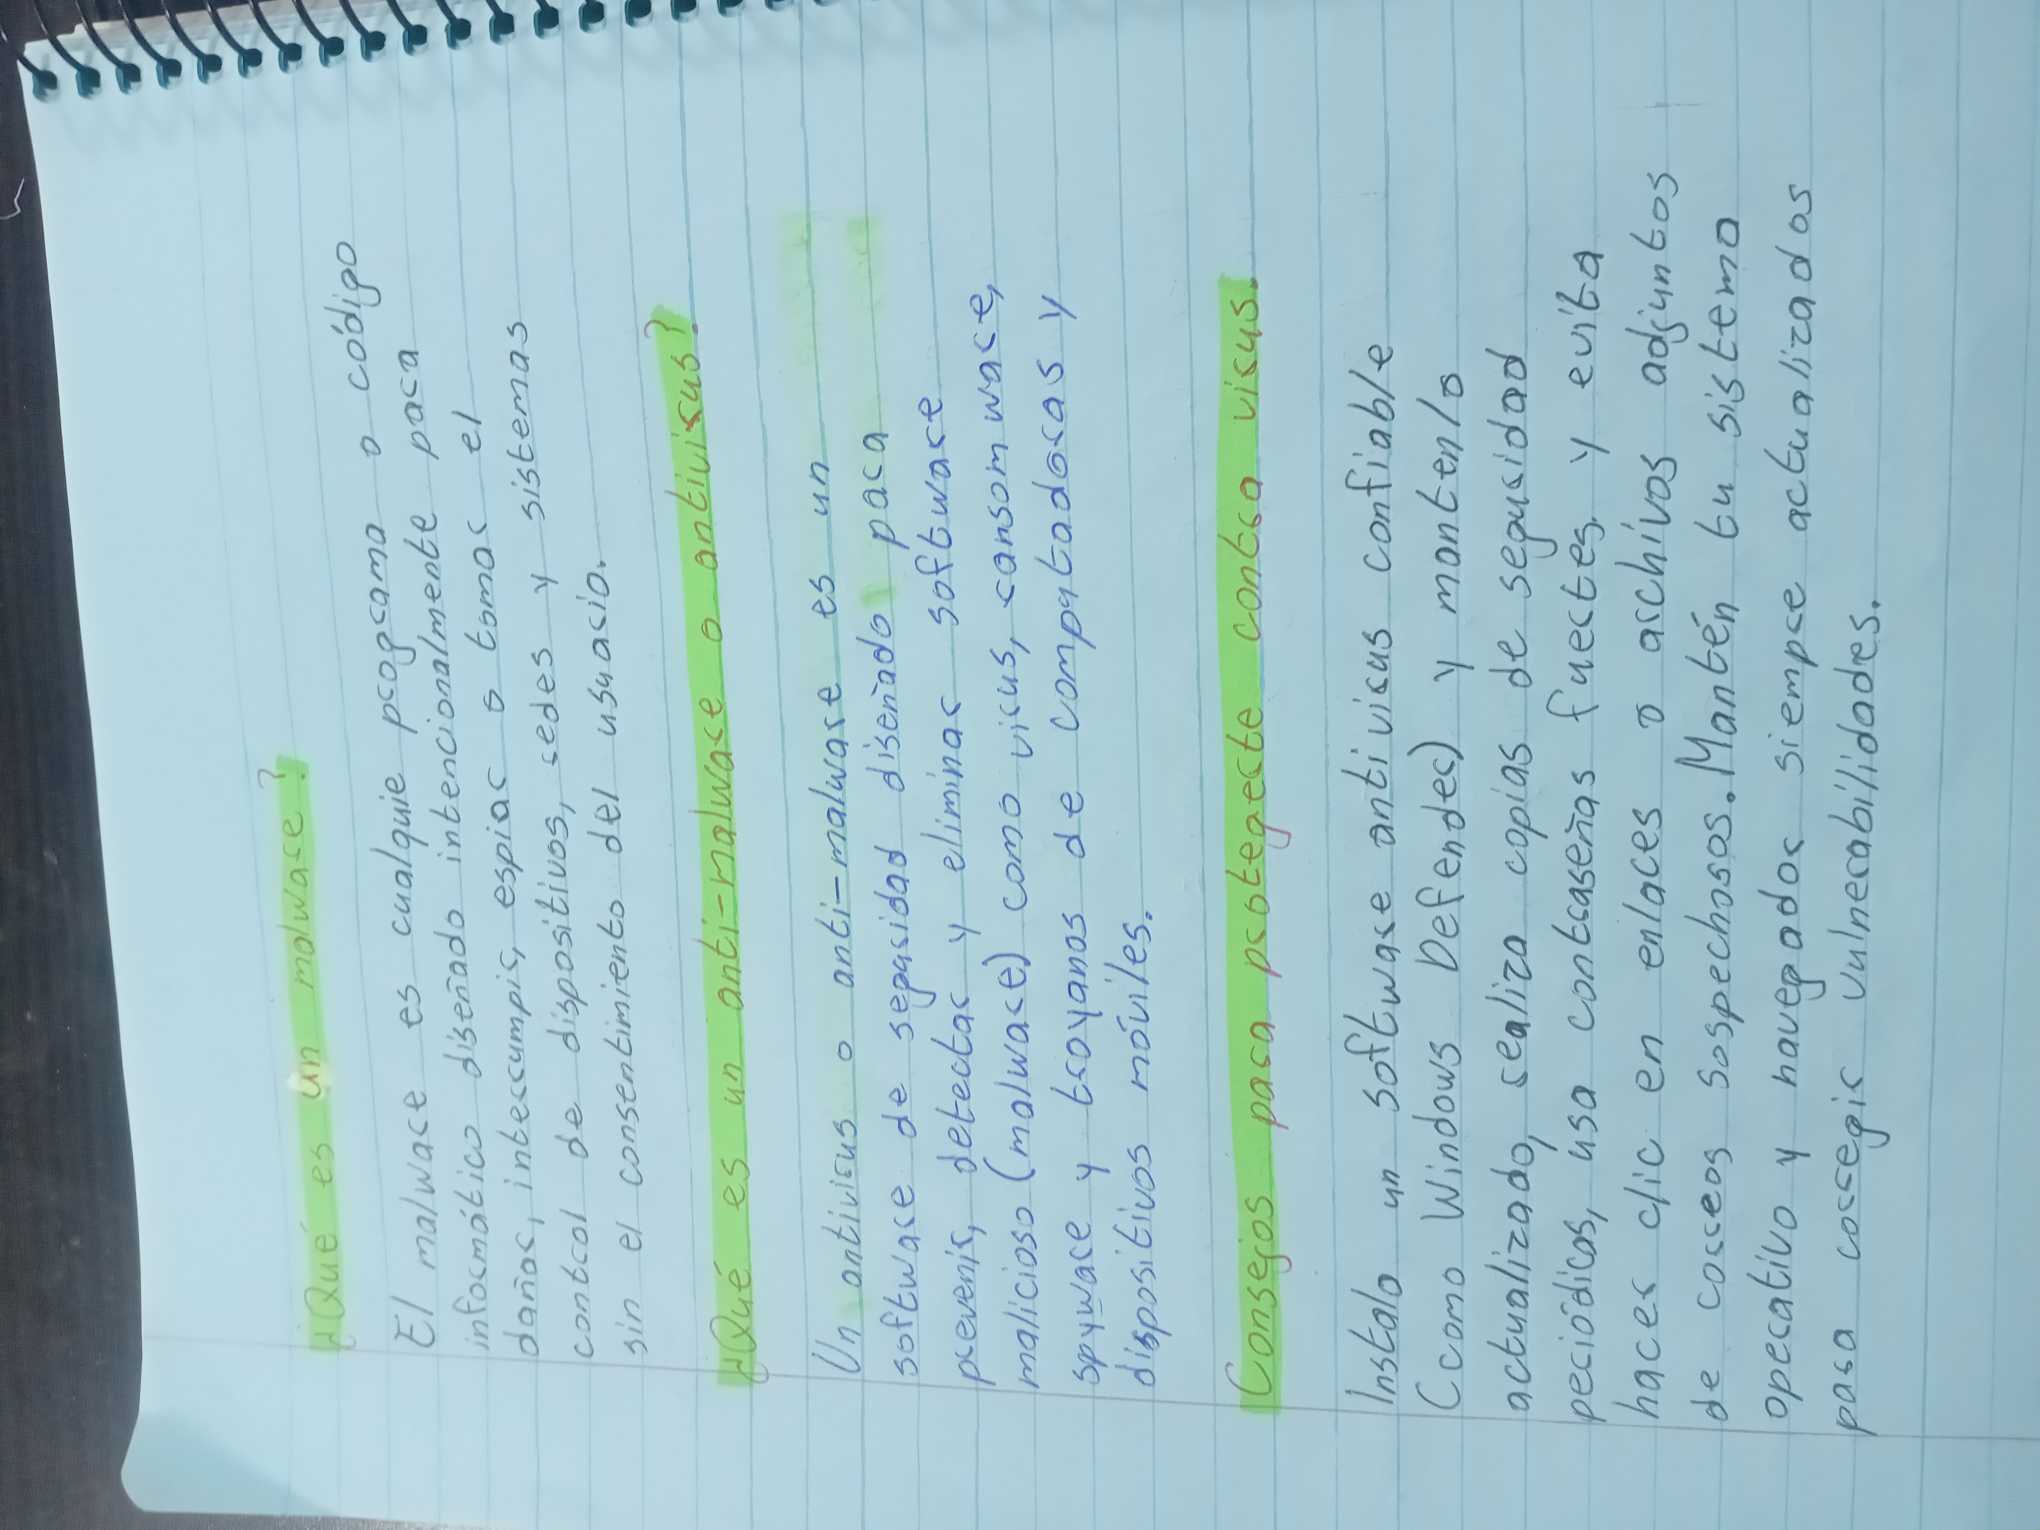 ¿Qué es un malware?
El malware es cualquie programa o código
informático diseñado intencionalmente para
dañar, interrumpir, espiar o tomar el
control de dispositivos, redes y sistemas
sin el consentimiento del usuario.
¿Qué es un anti-malware o antivirus?
Un antivirus o anti-malware es un
software de seguridad diseñado para
prevenir, detectar y eliminar software
malicioso (malware) como virus, ransomware,
spyware y troyanos de computadoras y
dispositivos móviles.
Consejos para protegerte contra virus.
Instala un software antivirus confiable
(como Windows Defender) y mantenlo
actualizado, realiza copias de seguridad
periódicas, usa contraseñas fuertes, y evita
hacer clic en enlaces o archivos adjuntos
de correos sospechosos. Mantén tu sistema
operativo y navegador siempre actualizados
para corregir vulnerabilidades.